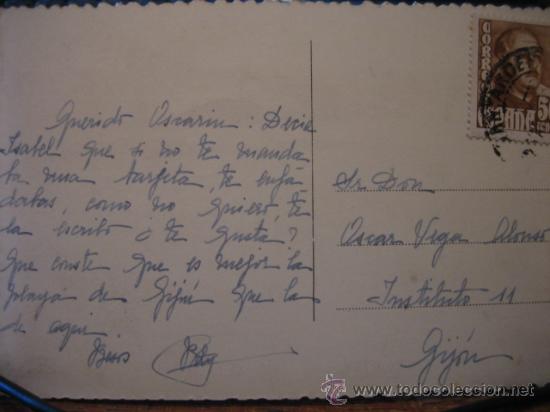 Querido Oscarin: Decia
Isabel que si no te manda
ba una tarjita, te enfa
dabas, como no quiero, te
la escribo ¿te gusta?
Que conste que es mejor la
playa de Gijón que la
de aqui.
Besos
Sr. Don
Oscar Vega Alonso
Instituto 11
Gijón
CORREOS
ESPAÑA
todocoleccion.net